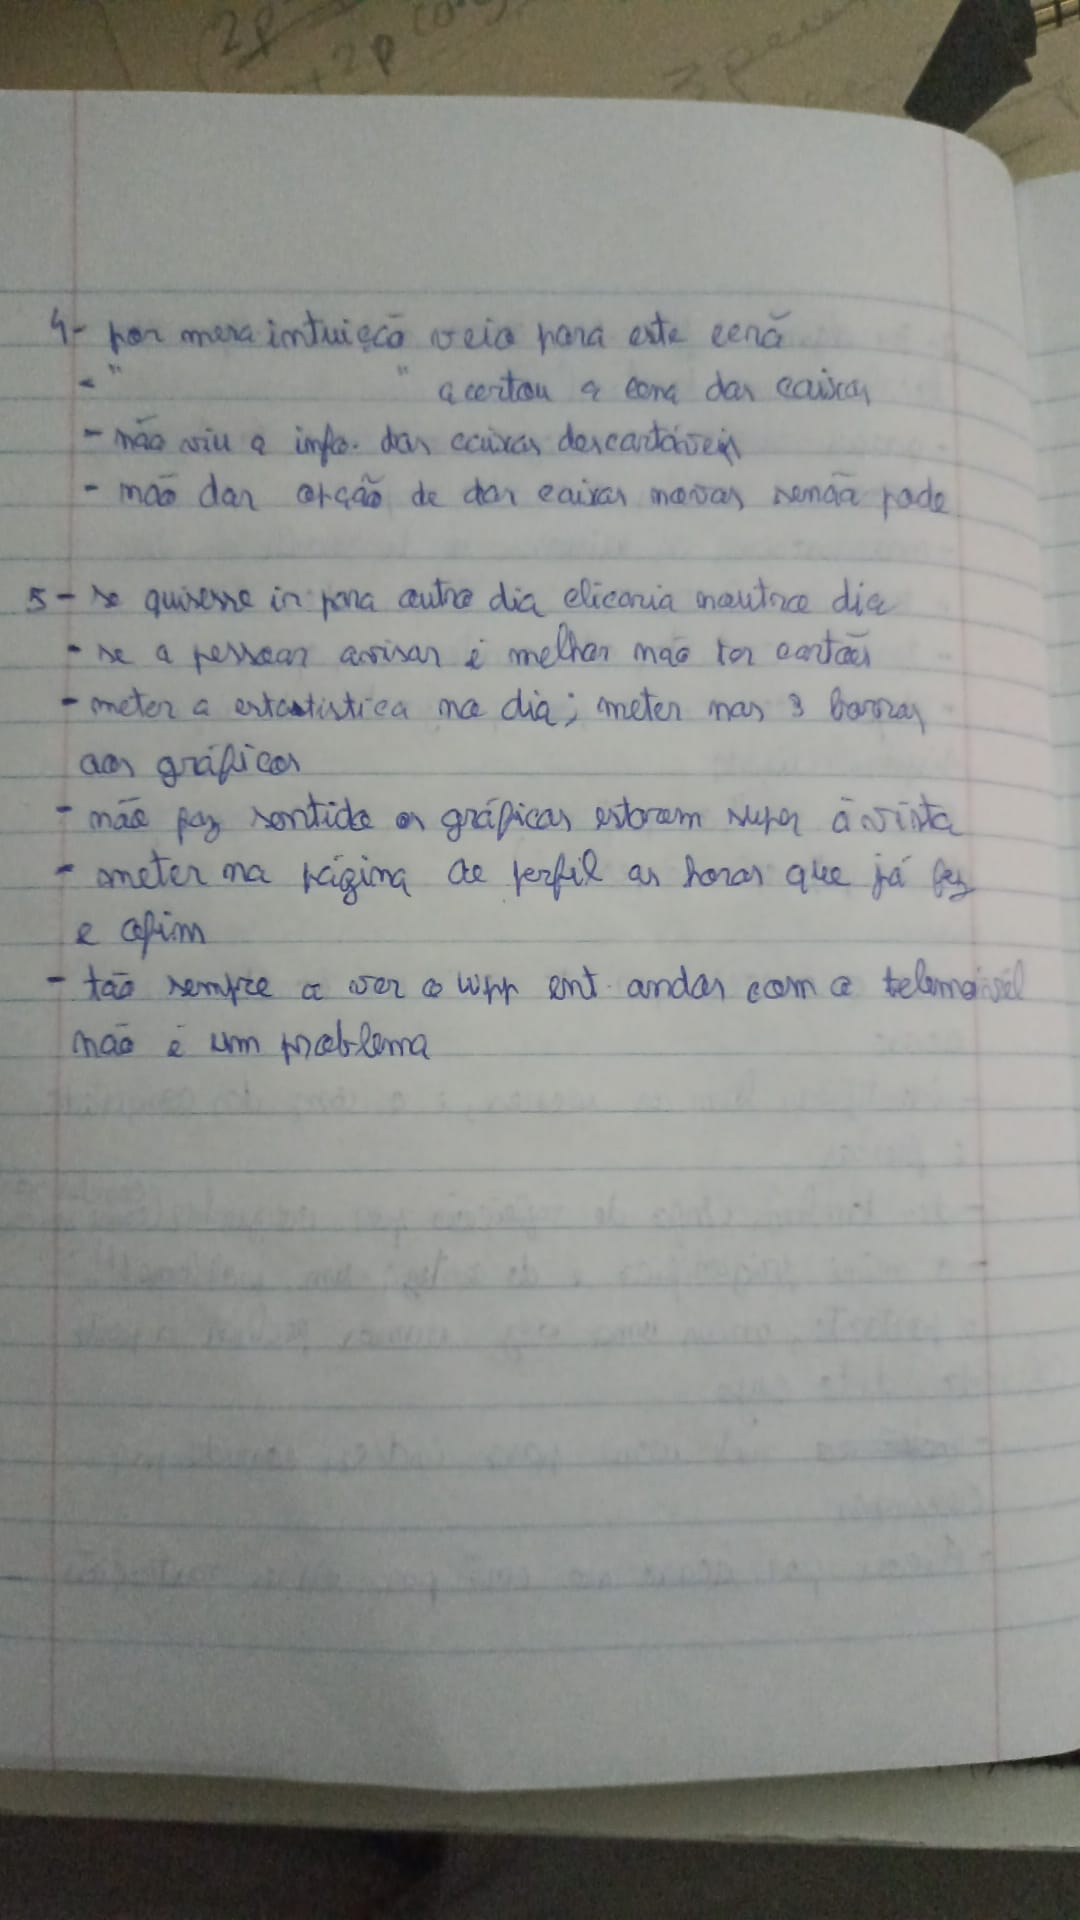 2p
+ 2p
3
4- por mera intuiçcã veio para este cenã
- " " acertou a cena das caixas
- não viu a info. das caixas descartáveis
- não dar opção de dar caixas novas senão pode
5- se quisesse ir para outro dia clicaria noutro dia
- se a pessoar avisar é melhor não ter cartões
- meter a estastistica no dia; meter nas 3 barras
aos gráficos
- não faz sentido os gráficos estarem super à vista
- meter na página de perfil as horas que já fez
e afim
- tão sempre a ver o wpp ent. andar com o telemóvel
não é um problema